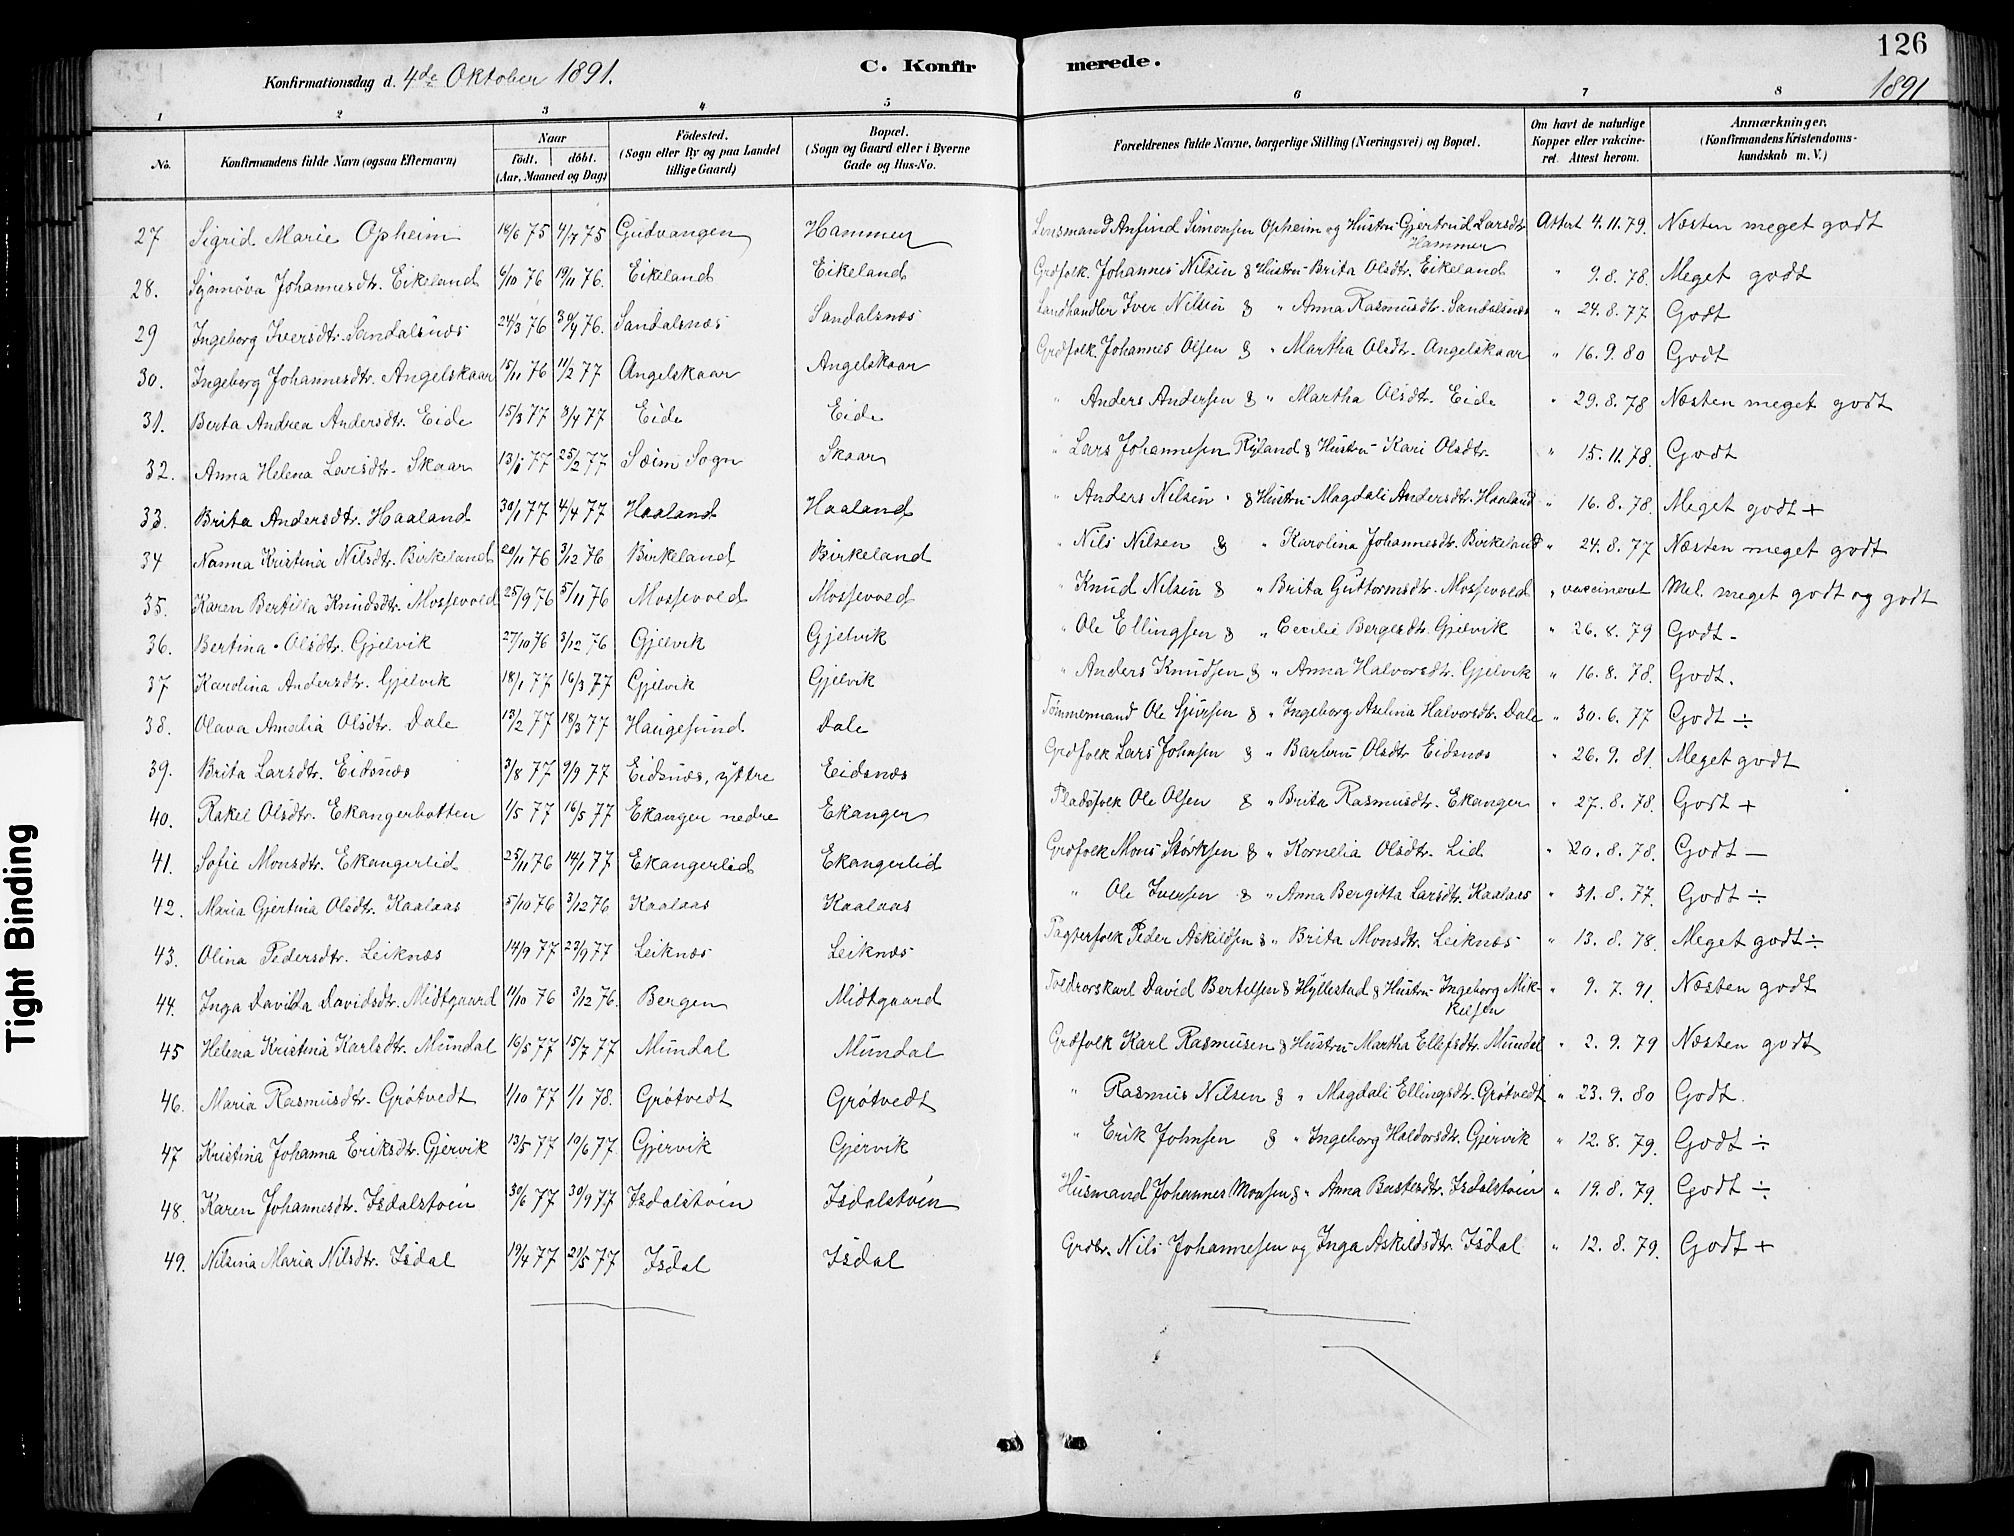 126
Konfirmationsdag d. 4de Oktober 1891. C. Konfirmerede. 1891
1 2 3 4 5 6 7 8
No. Konfirmandens fulde Navn (ogsaa Efternavn) Naar født. døbt. (Aar, Maaned og Dag) Fødested. (Sogn eller By og paa Landet tillige Gaard) Bopæl. (Sogn og Gaard eller i Byerne Gade og Hus-No. Forældrenes fulde Navne, borgerlige Stilling (Næringsvei) og Bopæl. Om havt de naturlige Kopper eller vakcineret. Attest herom. Anmærkninger. (Konfirmandens Kristendomskundskab m. V.)
27 Sigrid Marie Opheim 18/6 75 4/7 75 Gudvangen Hammer Lensmand Anfind Simonsen Opheim og Hustru Gjertrud Larsdtr. Hammer Attest 4.11.79. Næsten meget godt
28. Synnøva Johannesdtr. Eikeland 6/10 76 19/11 76. Eikeland Eikeland Grdfolk. Johannes Nilsen & Hustru Brita Olsdtr. Eikeland " 9.8.78. Meget godt
29 Ingeborg Iversdtr. Sandalsnæs 24/3 76 30/4 76. Sandalsnæs Sandalsnæs Landhandler Iver Nilsen & " Anna Rasmusdtr. Sandalsnæs " 24.8.77 Godt
30. Ingeborg Johannesdtr. Angelskaar 15/11 76 11/2 77 Angelskaar Angelskaar Grdfolk. Johannes Olsen & " Martha Olsdtr. Angelskaar " 16.9.80 Godt
31. Berta Andrea Andersdtr. Eide 15/3 77 3/4 77 Eide Eide " Anders Andersen & " Martha Olsdtr. Eide " 29.8.78 Næsten meget godt
32. Anna Helena Larsdtr. Skaar 77 25/2 77 Sæim Sogn Skaar " Lars Johannesen Ryland & Hustru Kari Olsdtr. " 15.11.78. Godt
33. Brita Andersdtr. Haaland 30/1 77 4/4 77 Haaland Haaland " Anders Nilsen & Hustru Magdali Andersdtr. Haaland " 16.8.78. Meget godt +
34 Nanna Kristina Nilsdtr. Birkeland 20/11 76 3/12 76 Birkeland Birkeland " Nils Nilsen & " Karolina Johannesdtr. Birkeland " 24.8.77 Næsten meget godt
35. Karen Bertilla Knudsdtr. Mossevold 25/9 76 5/11 76 Mossevold Mossevold " Knud Nilsen & " Brita Guttormsdtr. Mossevold " vaccineret Mel. meget godt og godt
36. Bertina Olsdtr. Gjelvik 27/10 76 3/12 76 Gjelvik Gjelvik " Ole Ellingsen & " Cecilie Bergesdtr. Gjelvik " 26.8.79 Godt -
37 Karolina Andersdtr. Gjelvik 18/1 77 16/3 77 Gjelvik Gjelvik " Anders Knudsen & " Anna Halvorsdtr. Gjelvik " 16.8.78. Godt.
38. Olava Amalia Olsdtr. Dale 13/2 77 18/3 77 Haugesund Dale Tømmermand Ole Sjursen & " Ingeborg Axelina Halvorsdtr. Dale " 30.6.77 Godt ÷
39. Brita Larsdtr. Eidsnæs 3/8 77 9/9 77 Eidsnæs, yttre Eidsnæs Grdfolk Lars Johnsen & " Barbru Olsdtr Eidsnæs " 26.9.81. Meget godt
40. Rakel Olsdtr. Ekangerbotten 1/5 77 16/5 77 Ekanger nedre Ekanger Pladsfolk Ole Olsen & " Brita Rasmusdtr. Ekanger " 27.8.78. Godt +
41. Sofie Monsdtr. Ekangerlid 25/11 76 14/1 77 Ekangerlid Ekangerlid Grdfolk Mons Størksen & " Kornelia Olsdtr. Lid " 20.8.78. Godt -
42. Maria Gjertina Olsdtr. Kaalaas 5/10 76 3/12 76 Kaalaas Kaalaas " Ole Iversen & " Anna Bergitta Larsdtr. Kaalaas " 31.8.77. Godt ÷
43. Olina Pedersdtr. Leiknæs 14/9 77 23/9 77 Leiknæs Leiknæs Pagterfolk Peder Askildsen & " Brita Monsdtr. Leiknæs " 13.8.78. Meget godt ÷
44. Inga Davida Davidsdtr. Midtgaard 11/10 76 3/12 76. Bergen Midtgaard Toldrorskarl David Bertelsen & Hyllestad & Hustru Ingeborg Mikkelsen " 9.7.91. Næsten godt
45 Helena Kristina Karlsdtr. Mundal 16/5 77 15/7 77 Mundal Mundal Grdfolk Karl Rasmusen & Hustru Martha Ellefsdtr. Mundal " 2.9.79 Næsten godt
46. Maria Rasmusdtr. Grøtvedt 1/10 77 1/1 78. Grøtvedt Grøtvedt " Rasmus Nilsen & " Magdali Ellingsdtr. Grøtvedt " 23.9.80 Godt.
47 Kristina Johanna Eriksdtr. Gjervik 13/5 77 10/6 77. Gjervik Gjervik " Erik Johnsen & " Ingeborg Haldorsdtr. Gjervik " 12.8.79. Godt ÷
48. Karen Johannesdtr. Isdalstøen 30/6 77 30/9 77 Isdalstøen Isdalstøen Husmand Johannes Monsen & " Anna Isdalstøen " 19.8.79. Godt ÷
49. Nilsina Maria Nilsdtr. Isdal 19/4 77 21/5 77 Isdal Isdal Grdbr. Nils Johannesen og Inga Askildsdtr. Isdal " 12.8.79. Godt +
Tight Binding